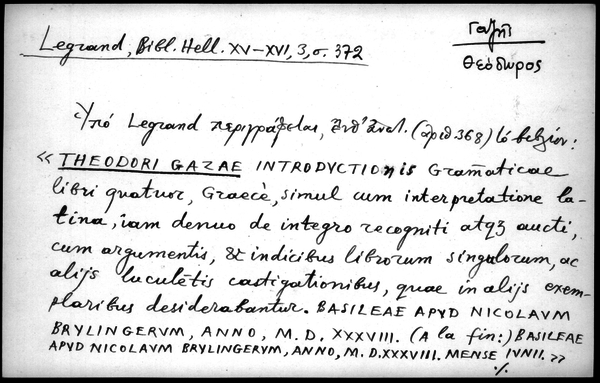 Legrand, Bibl. Hell. XV–XVI, 3, σ. 372
Γαζῆς
Θεόδωρος
Ὑπό Legrand περιγράφεται, ἔνθ' ἀνωτ. (ἀριθ. 368) τό βιβλίον:
« THEODORI GAZAE INTRODVCTIOnis Gram̄aticae
libri quatuor, Graecè, simul cum interpretatione la-
tina, iam denuo de integro recogniti atqʒ aucti,
cum argumentis, & indicibus librorum singulorum, ac
alijs luculētis castigationibus, quae in alijs exem-
plaribus desiderabantur. BASILEAE APVD NICOLAVM
BRYLINGERVM, ANNO, M. D. XXXVIII. (A la fin:) BASILEAE
APVD NICOLAVM BRYLINGERVM, ANNO, M. D. XXXVIII. MENSE IVNII. »
./.